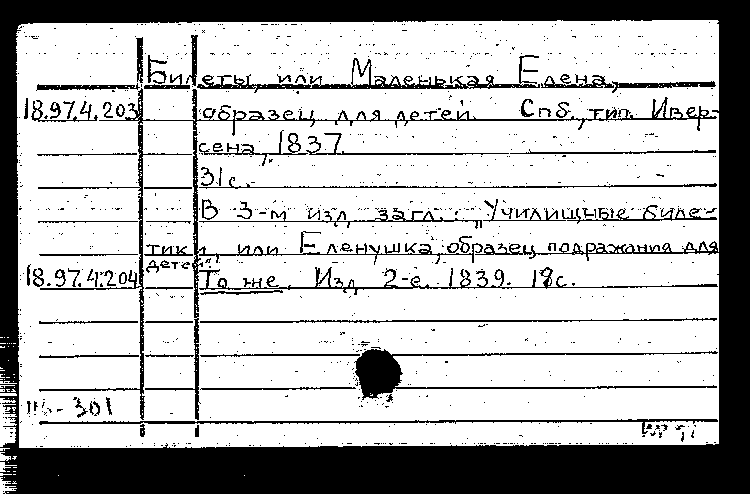 Билеты, или Маленькая Елена,
18.97.4.203 образец для детей. Спб., тип. Ивер-
сена, 1837.
31 с.
В 3-м изд. загл.: „Училищные биле-
тики, или Еленушка, образец подражания для
детей".
18.97.4.204 То же. Изд. 2-е. 1839. с.
301